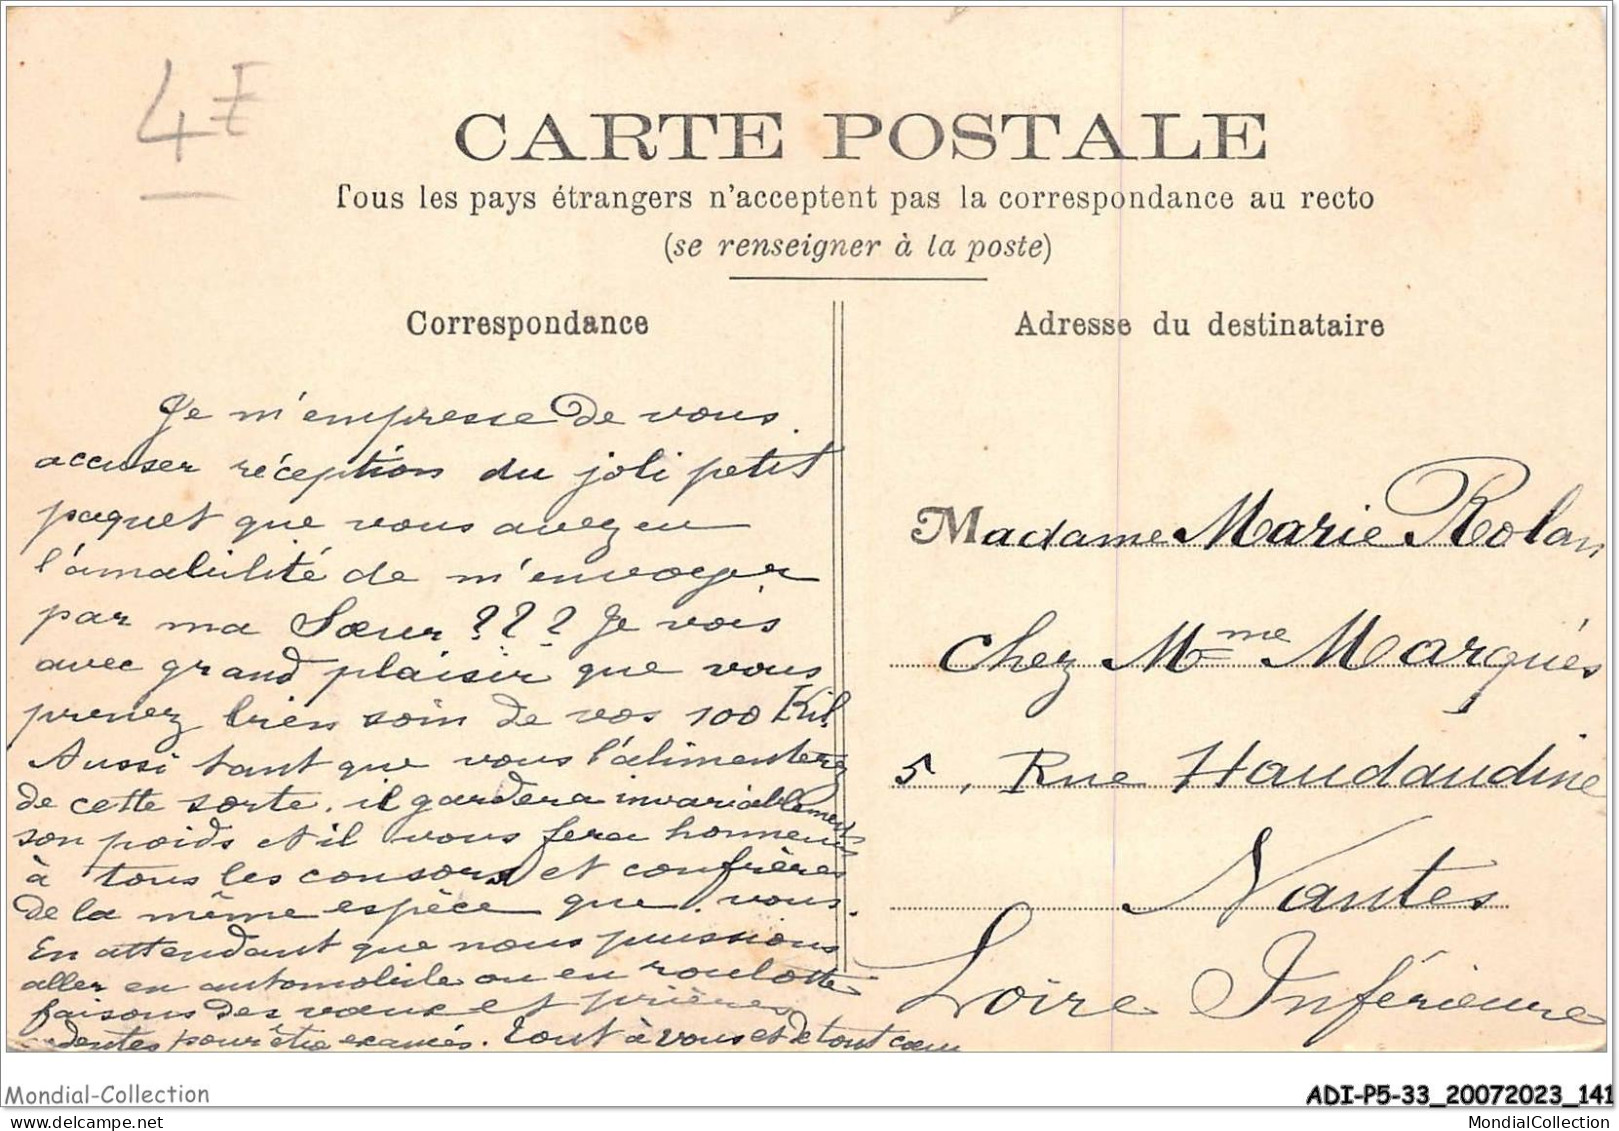 4E
CARTE POSTALE
Tous les pays étrangers n'acceptent pas la correspondance au recto
(se renseigner à la poste)
Correspondance
Je m'empresse de vous
accuser réception du joli petit
paquet que vous avez eu
l'amabilité de m'envoyer
par ma Sœur ??? Je vois
avec grand plaisir que vous
prenez bien soin de vos 100 Kil.
Aussi tant que vous l'alimenterez
de cette sorte. il gardera invariablement
son poids et il vous fera honneur
à tous les consors et confrères
de la même espèce que vous.
En attendant que nous puissions
aller en automobile ou en roulotte
faisons des vœux et prières
dentes pour être exaucés. tout à vous et de tout cœur
Adresse du destinataire
Madame Marie Rolan
Chez Mme Marqués
5, Rue Haudaudine
Nantes
Loire Inférieure
Mondial-Collection
ADI-P5-33_20072023_141
MondialCollection
MondialCollection